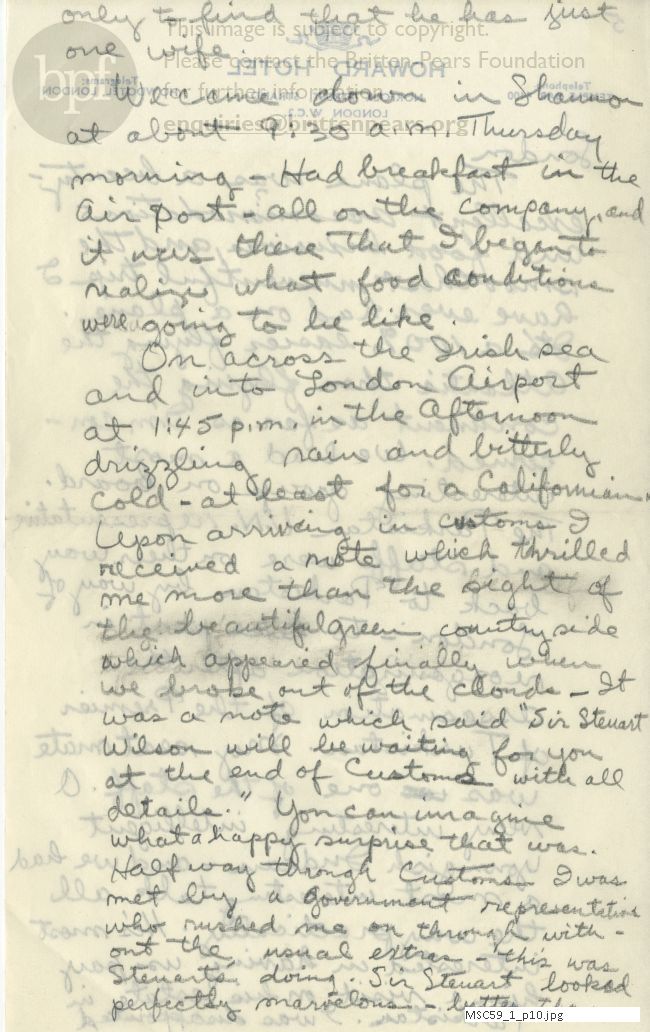 only to find that he has just
one wife.
We came down in Shannon
at about 9:30 a.m. Thursday
morning - Had breakfast in the
Air port - all on the company, and
it was there that I began to
realize what food conditions
were going to be like.
On across the Irish sea
and into London Airport
at 1:45 p.m. in the Afternoon
drizzling rain and bitterly
cold - at least for a Californian.
Upon arriving in customs I
received a note which thrilled
me more than the sight of
the beautiful green country side
which appeared finally when
we broke out of the clouds - It
was a note which said "Sir Steuart
Wilson will be waiting for you
at the end of Customs with all
details." You can imagine
what a happy surprise that was.
Half way through Customs I was
met by a government representative
who rushed me on through with-
out the usual extras - this was
Steuarts doing. Sir Steuart looked
perfectly marvelous - better
This image is subject to copyright.
Please contact the Britten-Pears Foundation
for further information
enquiries@brittenpears.org
bpf
HOWARD HOTEL
LONDON, W.C.2
MSC59_1_p10.jpg